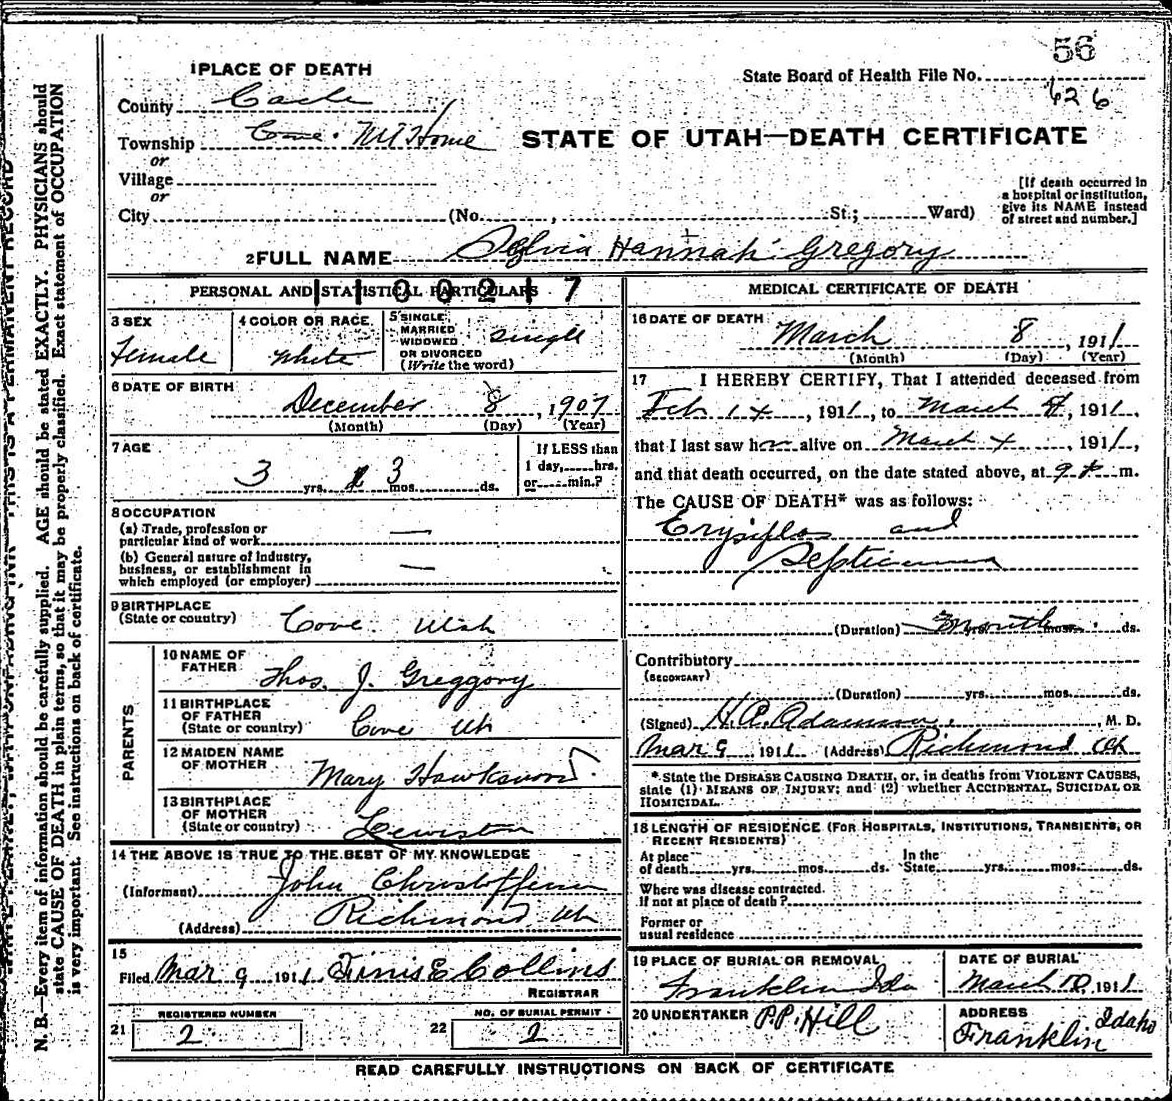 56
1 PLACE OF DEATH
State Board of Health File No.
626
County Cache
Township Cove. Mt Home
STATE OF UTAH—DEATH CERTIFICATE
or
Village
or
City (No. , St.; Ward)
[If death occurred in
a hospital or institution,
give its NAME instead
of street and number.]
2 FULL NAME Sylvia Hannah Gregory
PERSONAL AND STATISTICAL PARTICULARS
1100217
3 SEX
Female
4 COLOR OR RACE
White
5 SINGLE
MARRIED
WIDOWED
OR DIVORCED
(Write the word)
Single
6 DATE OF BIRTH
December 8, 1907
(Month) (Day) (Year)
7 AGE
3 yrs. 3 mos. ds.
If LESS than
1 day, hrs.
or min.?
8 OCCUPATION
(a) Trade, profession or
particular kind of work —
(b) General nature of industry,
business, or establishment in
which employed (or employer) —
9 BIRTHPLACE
(State or country)
Cove Utah
PARENTS
10 NAME OF
FATHER
Thos. J. Greggory
11 BIRTHPLACE
OF FATHER
(State or country)
Cove Ut
12 MAIDEN NAME
OF MOTHER
Mary Hawkswood
13 BIRTHPLACE
OF MOTHER
(State or country)
Lewiston
14 THE ABOVE IS TRUE TO THE BEST OF MY KNOWLEDGE
(Informant) John Christoffersen
(Address) Richmond Ut
15
Filed Mar 9 1911 Finis E Collins
REGISTRAR
21 REGISTERED NUMBER
2
22 NO. OF BURIAL PERMIT
2
MEDICAL CERTIFICATE OF DEATH
16 DATE OF DEATH
March 8, 1911
(Month) (Day) (Year)
17 I HEREBY CERTIFY, That I attended deceased from
Feb 14, 1911, to March 4, 1911,
that I last saw her alive on March 4, 1911,
and that death occurred, on the date stated above, at 9 m.
The CAUSE OF DEATH* was as follows:
Erysiplas and
Septicemia
(Duration) yrs. mos. ds.
Contributory
(SECONDARY)
(Duration) yrs. mos. ds.
(Signed) H.C. Adamson, M. D.
Mar 9 1911 (Address) Richmond Ut
* State the DISEASE CAUSING DEATH, or, in deaths from VIOLENT CAUSES,
state (1) MEANS OF INJURY; and (2) whether ACCIDENTAL, SUICIDAL OR
HOMICIDAL.
18 LENGTH OF RESIDENCE (FOR HOSPITALS, INSTITUTIONS, TRANSIENTS, OR
RECENT RESIDENTS)
At place
of death yrs. mos. ds.
In the
State yrs. mos. ds.
Where was disease contracted.
If not at place of death?
Former or
usual residence
19 PLACE OF BURIAL OR REMOVAL
Franklin Ida
DATE OF BURIAL
March 10, 1911
20 UNDERTAKER P.P. Hill
ADDRESS
Franklin Idaho
READ CAREFULLY INSTRUCTIONS ON BACK OF CERTIFICATE
THIS IS A PERMANENT RECORD
N. B.—Every item of information should be carefully supplied. AGE should be stated EXACTLY. PHYSICIANS should
state CAUSE OF DEATH in plain terms, so that it may be properly classified. Exact statement of OCCUPATION
is very important. See instructions on back of certificate.